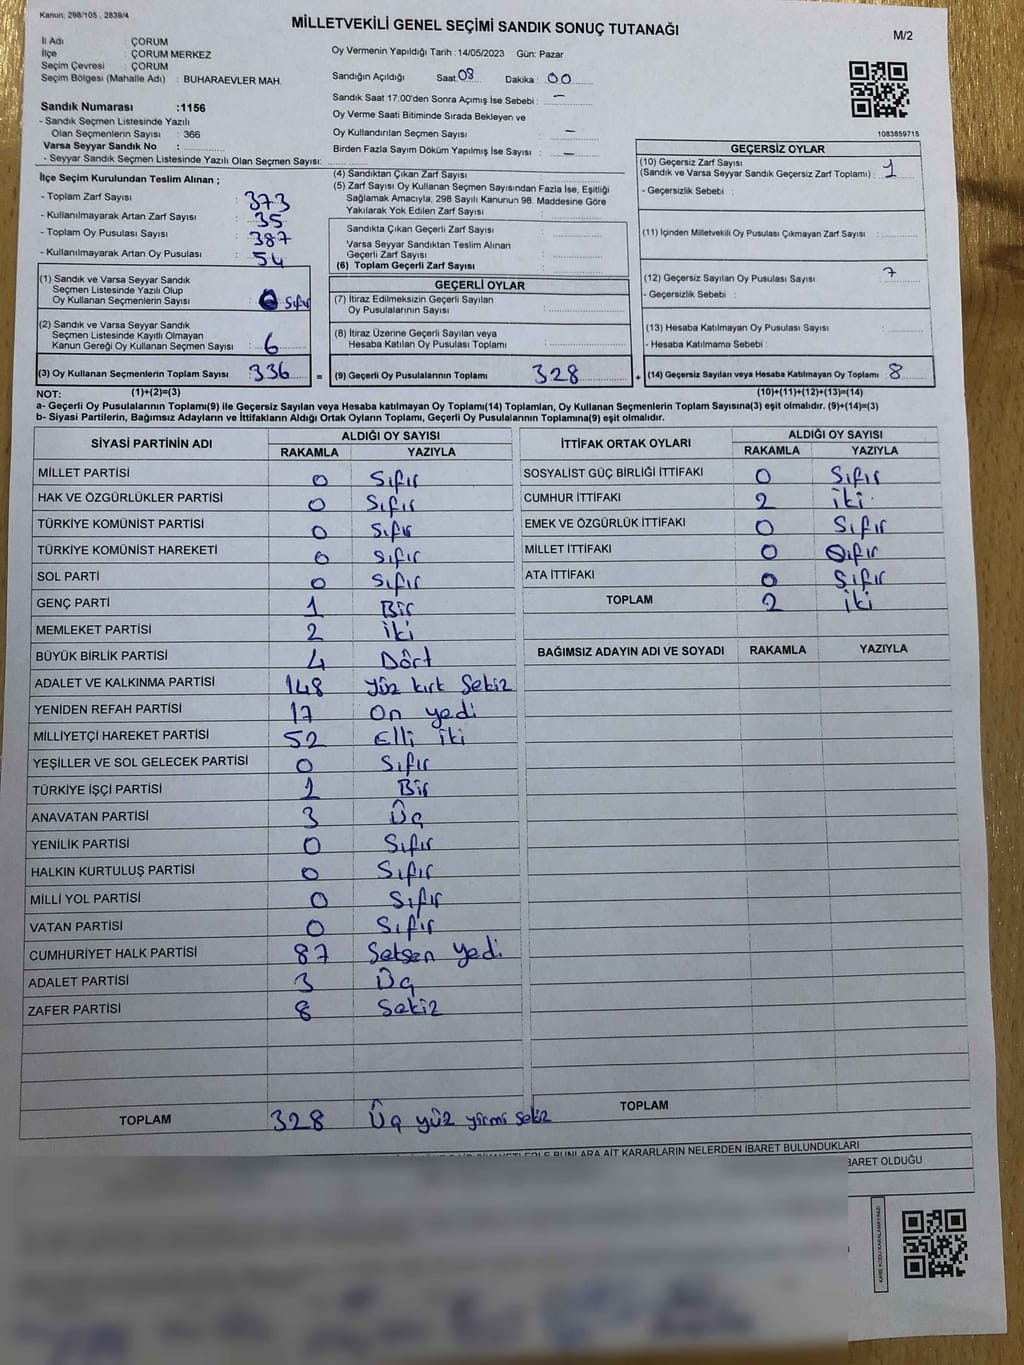 Kanun: 298/105 , 2839/4
MİLLETVEKİLİ GENEL SEÇİMİ SANDIK SONUÇ TUTANAĞI
M/2
İl Adı : ÇORUM
İlçe : ÇORUM MERKEZ
Seçim Çevresi : ÇORUM
Seçim Bölgesi (Mahalle Adı) : BUHARAEVLER MAH.
Sandık Numarası :1156
- Sandık Seçmen Listesinde Yazılı
Olan Seçmenlerin Sayısı : 366
Varsa Seyyar Sandık No :
- Seyyar Sandık Seçmen Listesinde Yazılı Olan Seçmen Sayısı:
Oy Vermenin Yapıldığı Tarih :14/05/2023 Gün: Pazar
Sandığın Açıldığı Saat: 08 Dakika : 00
Sandık Saat 17:00'den Sonra Açımış İse Sebebi : –
Oy Verme Saati Bitiminde Sırada Bekleyen ve
Oy Kullandırılan Seçmen Sayısı : –
Birden Fazla Sayım Döküm Yapılmış İse Sayısı : –
1083859715
İlçe Seçim Kurulundan Teslim Alınan ;
- Toplam Zarf Sayısı : 373
- Kullanılmayarak Artan Zarf Sayısı : 35
- Toplam Oy Pusulası Sayısı : 387
- Kullanılmayarak Artan Oy Pusulası : 54
(1) Sandık ve Varsa Seyyar Sandık
Seçmen Listesinde Yazılı Olup
Oy Kullanan Seçmenlerin Sayısı : Sıfır
(2) Sandık ve Varsa Seyyar Sandık
Seçmen Listesinde Kayıtlı Olmayan
Kanun Gereği Oy Kullanan Seçmen Sayısı : 6
(3) Oy Kullanan Seçmenlerin Toplam Sayısı : 336 =
(4) Sandıktan Çıkan Zarf Sayısı :
(5) Zarf Sayısı Oy Kullanan Seçmen Sayısından Fazla İse, Eşitliği
Sağlamak Amacıyla, 298 Sayılı Kanunun 98. Maddesine Göre
Yakılarak Yok Edilen Zarf Sayısı :
Sandıkta Çıkan Geçerli Zarf Sayısı :
Varsa Seyyar Sandıktan Teslim Alınan
Geçerli Zarf Sayısı :
(6) Toplam Geçerli Zarf Sayısı :
GEÇERLİ OYLAR
(7) İtiraz Edilmeksizin Geçerli Sayılan
Oy Pusulalarının Sayısı :
(8) İtiraz Üzerine Geçerli Sayılan veya
Hesaba Katılan Oy Pusulası Toplamı :
(9) Geçerli Oy Pusulalarının Toplamı : 328 +
GEÇERSİZ OYLAR
(10) Geçersiz Zarf Sayısı
(Sandık ve Varsa Seyyar Sandık Geçersiz Zarf Toplamı) : 1
- Geçersizlik Sebebi :
(11) İçinden Milletvekili Oy Pusulası Çıkmayan Zarf Sayısı :
(12) Geçersiz Sayılan Oy Pusulası Sayısı : 7
- Geçersizlik Sebebi :
(13) Hesaba Katılmayan Oy Pusulası Sayısı :
- Hesaba Katılmama Sebebi :
(14) Geçersiz Sayılan veya Hesaba Katılmayan Oy Toplamı : 8
NOT: (1)+(2)=(3) (10)+(11)+(12)+(13)=(14)
a- Geçerli Oy Pusulalarının Toplamı(9) ile Geçersiz Sayılan veya Hesaba katılmayan Oy Toplamı(14) Toplamları, Oy Kullanan Seçmenlerin Toplam Sayısına(3) eşit olmalıdır. (9)+(14)=(3)
b- Siyasi Partilerin, Bağımsız Adayların ve İttifakların Aldığı Ortak Oyların Toplamı, Geçerli Oy Pusulalarının Toplamına(9) eşit olmalıdır.
SİYASİ PARTİNİN ADI ALDIĞI OY SAYISI
RAKAMLA YAZIYLA
MİLLET PARTİSİ 0 Sıfır
HAK VE ÖZGÜRLÜKLER PARTİSİ 0 Sıfır
TÜRKİYE KOMÜNİST PARTİSİ 0 Sıfır
TÜRKİYE KOMÜNİST HAREKETİ 0 Sıfır
SOL PARTİ 0 Sıfır
GENÇ PARTİ 1 Bir
MEMLEKET PARTİSİ 2 İki
BÜYÜK BİRLİK PARTİSİ 4 Dört
ADALET VE KALKINMA PARTİSİ 148 Yüz kırk Sekiz
YENİDEN REFAH PARTİSİ 17 On yedi
MİLLİYETÇİ HAREKET PARTİSİ 52 Elli iki
YEŞİLLER VE SOL GELECEK PARTİSİ 0 Sıfır
TÜRKİYE İŞÇİ PARTİSİ 1 Bir
ANAVATAN PARTİSİ 3 Üç
YENİLİK PARTİSİ 0 Sıfır
HALKIN KURTULUŞ PARTİSİ 0 Sıfır
MİLLİ YOL PARTİSİ 0 Sıfır
VATAN PARTİSİ 0 Sıfır
CUMHURİYET HALK PARTİSİ 87 Seksen yedi
ADALET PARTİSİ 3 Üç
ZAFER PARTİSİ 8 Sekiz
TOPLAM 328 Üç yüz yirmi sekiz
İTTİFAK ORTAK OYLARI ALDIĞI OY SAYISI
RAKAMLA YAZIYLA
SOSYALİST GÜÇ BİRLİĞİ İTTİFAKI 0 Sıfır
CUMHUR İTTİFAKI 2 iki
EMEK VE ÖZGÜRLÜK İTTİFAKI 0 Sıfır
MİLLET İTTİFAKI 0 Sıfır
ATA İTTİFAKI 0 Sıfır
TOPLAM 2 iki
BAĞIMSIZ ADAYIN ADI VE SOYADI RAKAMLA YAZIYLA
TOPLAM
BUNLARA AİT KARARLARIN NELERDEN İBARET BULUNDUKLARI
İBARET OLDUĞU
KARE KODU KARALAMAYINIZ!